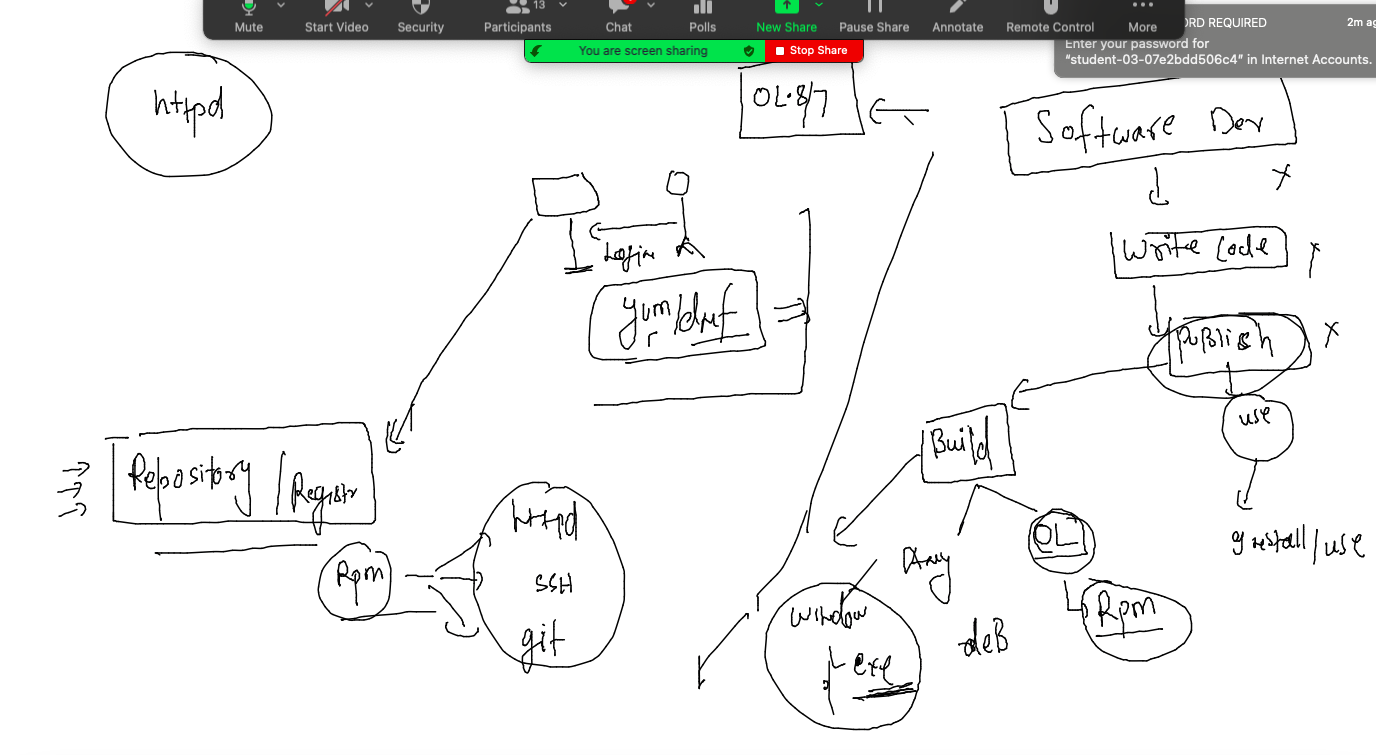 Mute
Start Video
Security
13
Participants
Chat
Polls
New Share
Pause Share
Annotate
Remote Control
More
You are screen sharing
Stop Share
ORD REQUIRED
2m ag
Enter your password for
“student-03-07e2bdd506c4” in Internet Accounts.
httpd
OL·8/7
Software Dev
Login
Write Code
yum/dnf
Publish
use
Build
Repository / Registr
httpd
SSH
git
Rpm
OL
install/use
window
exe
deB
Rpm